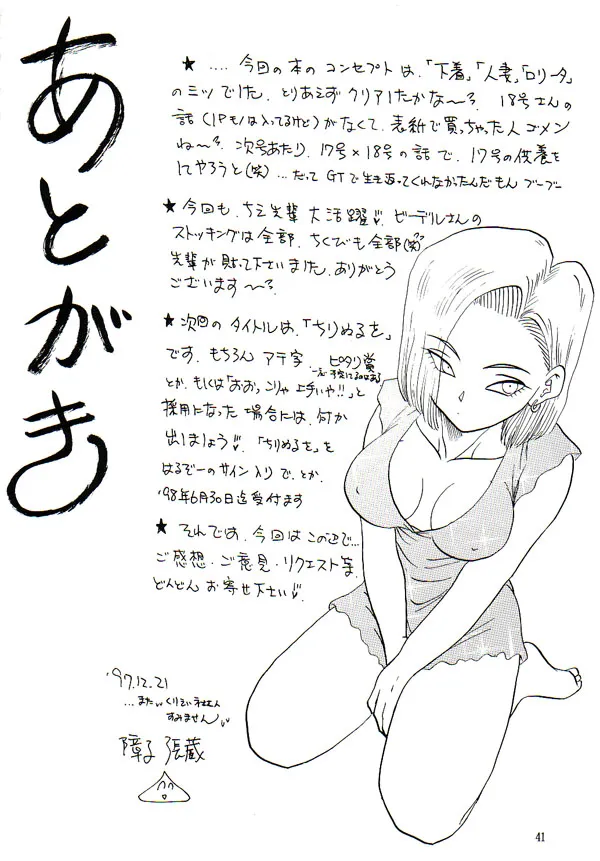 あとがき
★ .... 今回の本の コンセプト は、「下着」「人妻」「ロリータ」
の三ツ でした。とりあえず クリアしたかな〜? 18号さんの
話 (1Pモノは入ってるけど) がなくて、表紙で買っちゃった人ゴメン
ね〜? 次号あたり、17号×18号の話 で、17号の供養を
してやろうと(笑) … だって GTで生き返ってくれなかったんだもん ブーブー
★ 今回も、ちえ先輩 大活躍 ビーデルさんの
ストッキングは全部、ちくびも全部(笑)
先輩が貼って下さいました、ありがとう
ございます〜?
★ 次回の タイトルは、「ちりぬるを」
です。もちろん アテ字 ピタリ賞
とか、もしくは「おおっこりゃ上手いや!!」と
採用になった 場合には、何か
出しましょう 「ちりぬるを」を
はるぞーのサイン入り で、とか
'98年6月30日迄受付ます
★ それでは、今回は この辺で…
ご感想・ご意見・リクエスト等
どんどん お寄せ下さい
'97.12.21
…また くりそい ネエさん
すみません
障子 張蔵
41